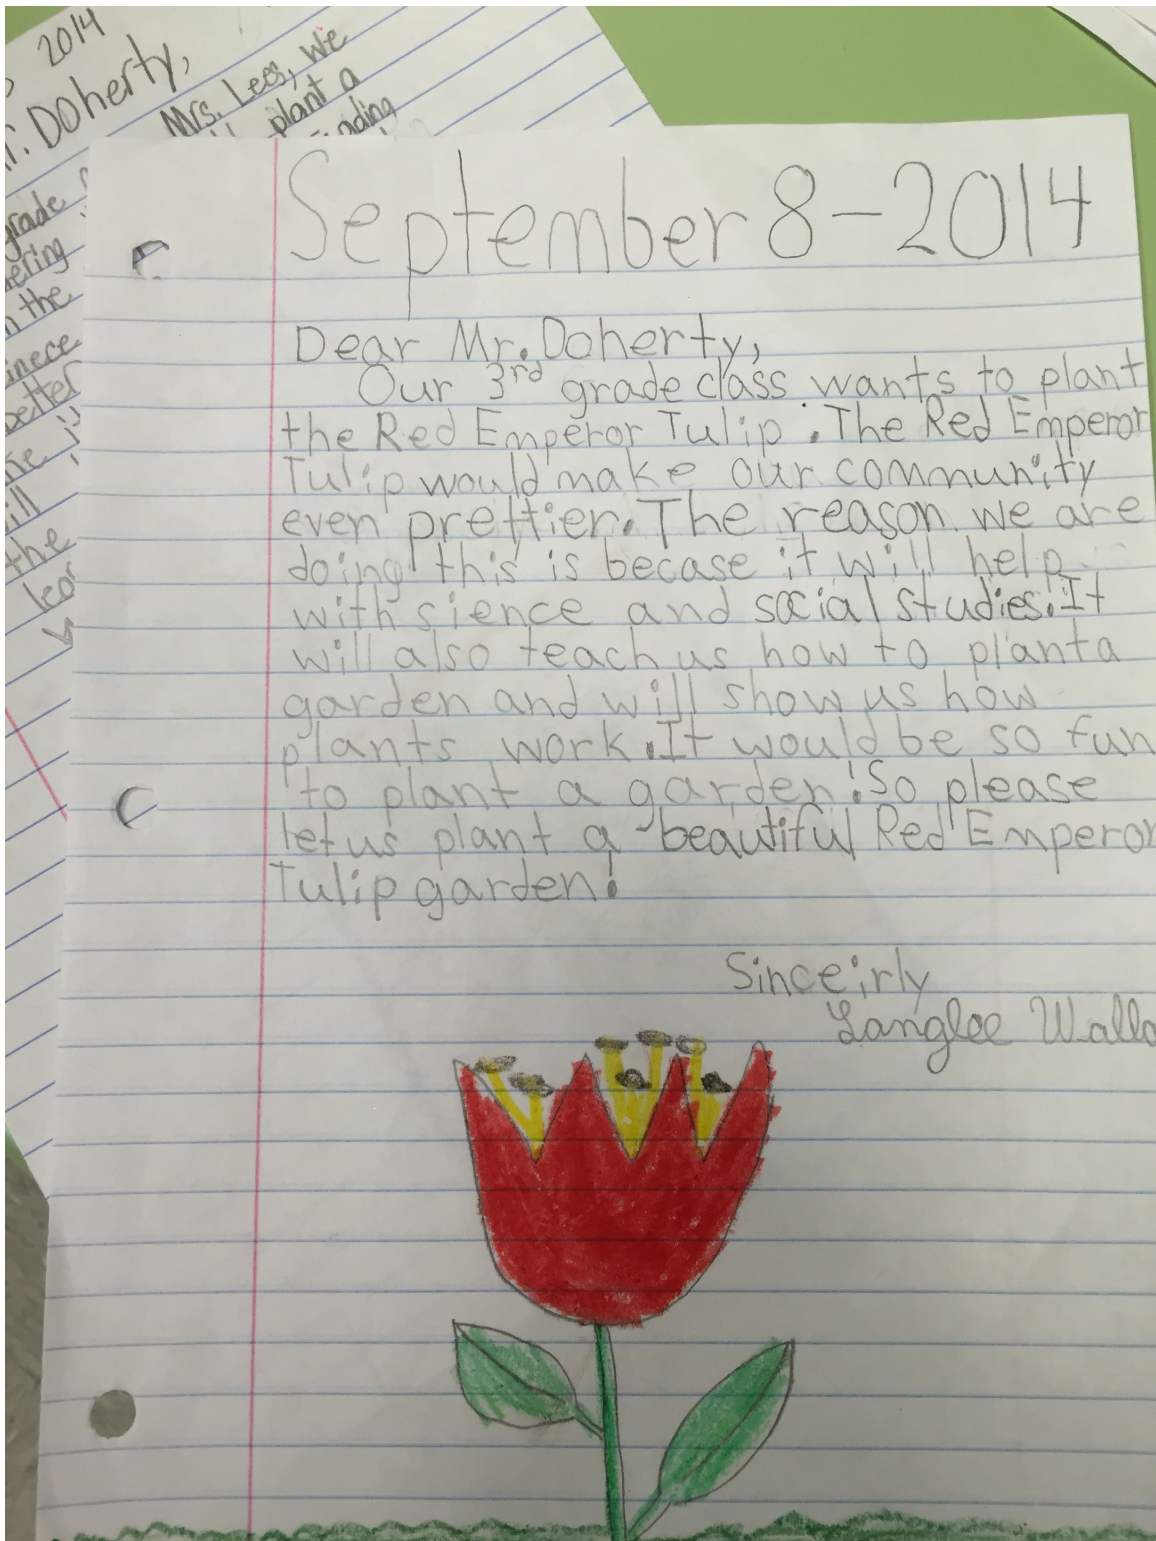 2014
Doherty,
Mrs. Lees, We
plant a
grade
the
better
the
September 8-2014
Dear Mr. Doherty,
Our 3rd grade class wants to plant
the Red Emperor Tulip. The Red Emperor
Tulip would make our community
even prettier. The reason we are
doing this is becase it will help
with sience and social studies. It
will also teach us how to plant a
garden and will show us how
plants work. It would be so fun
to plant a garden! So please
let us plant a beautiful Red Emperor
Tulip garden!
Sinceirly
Langlee